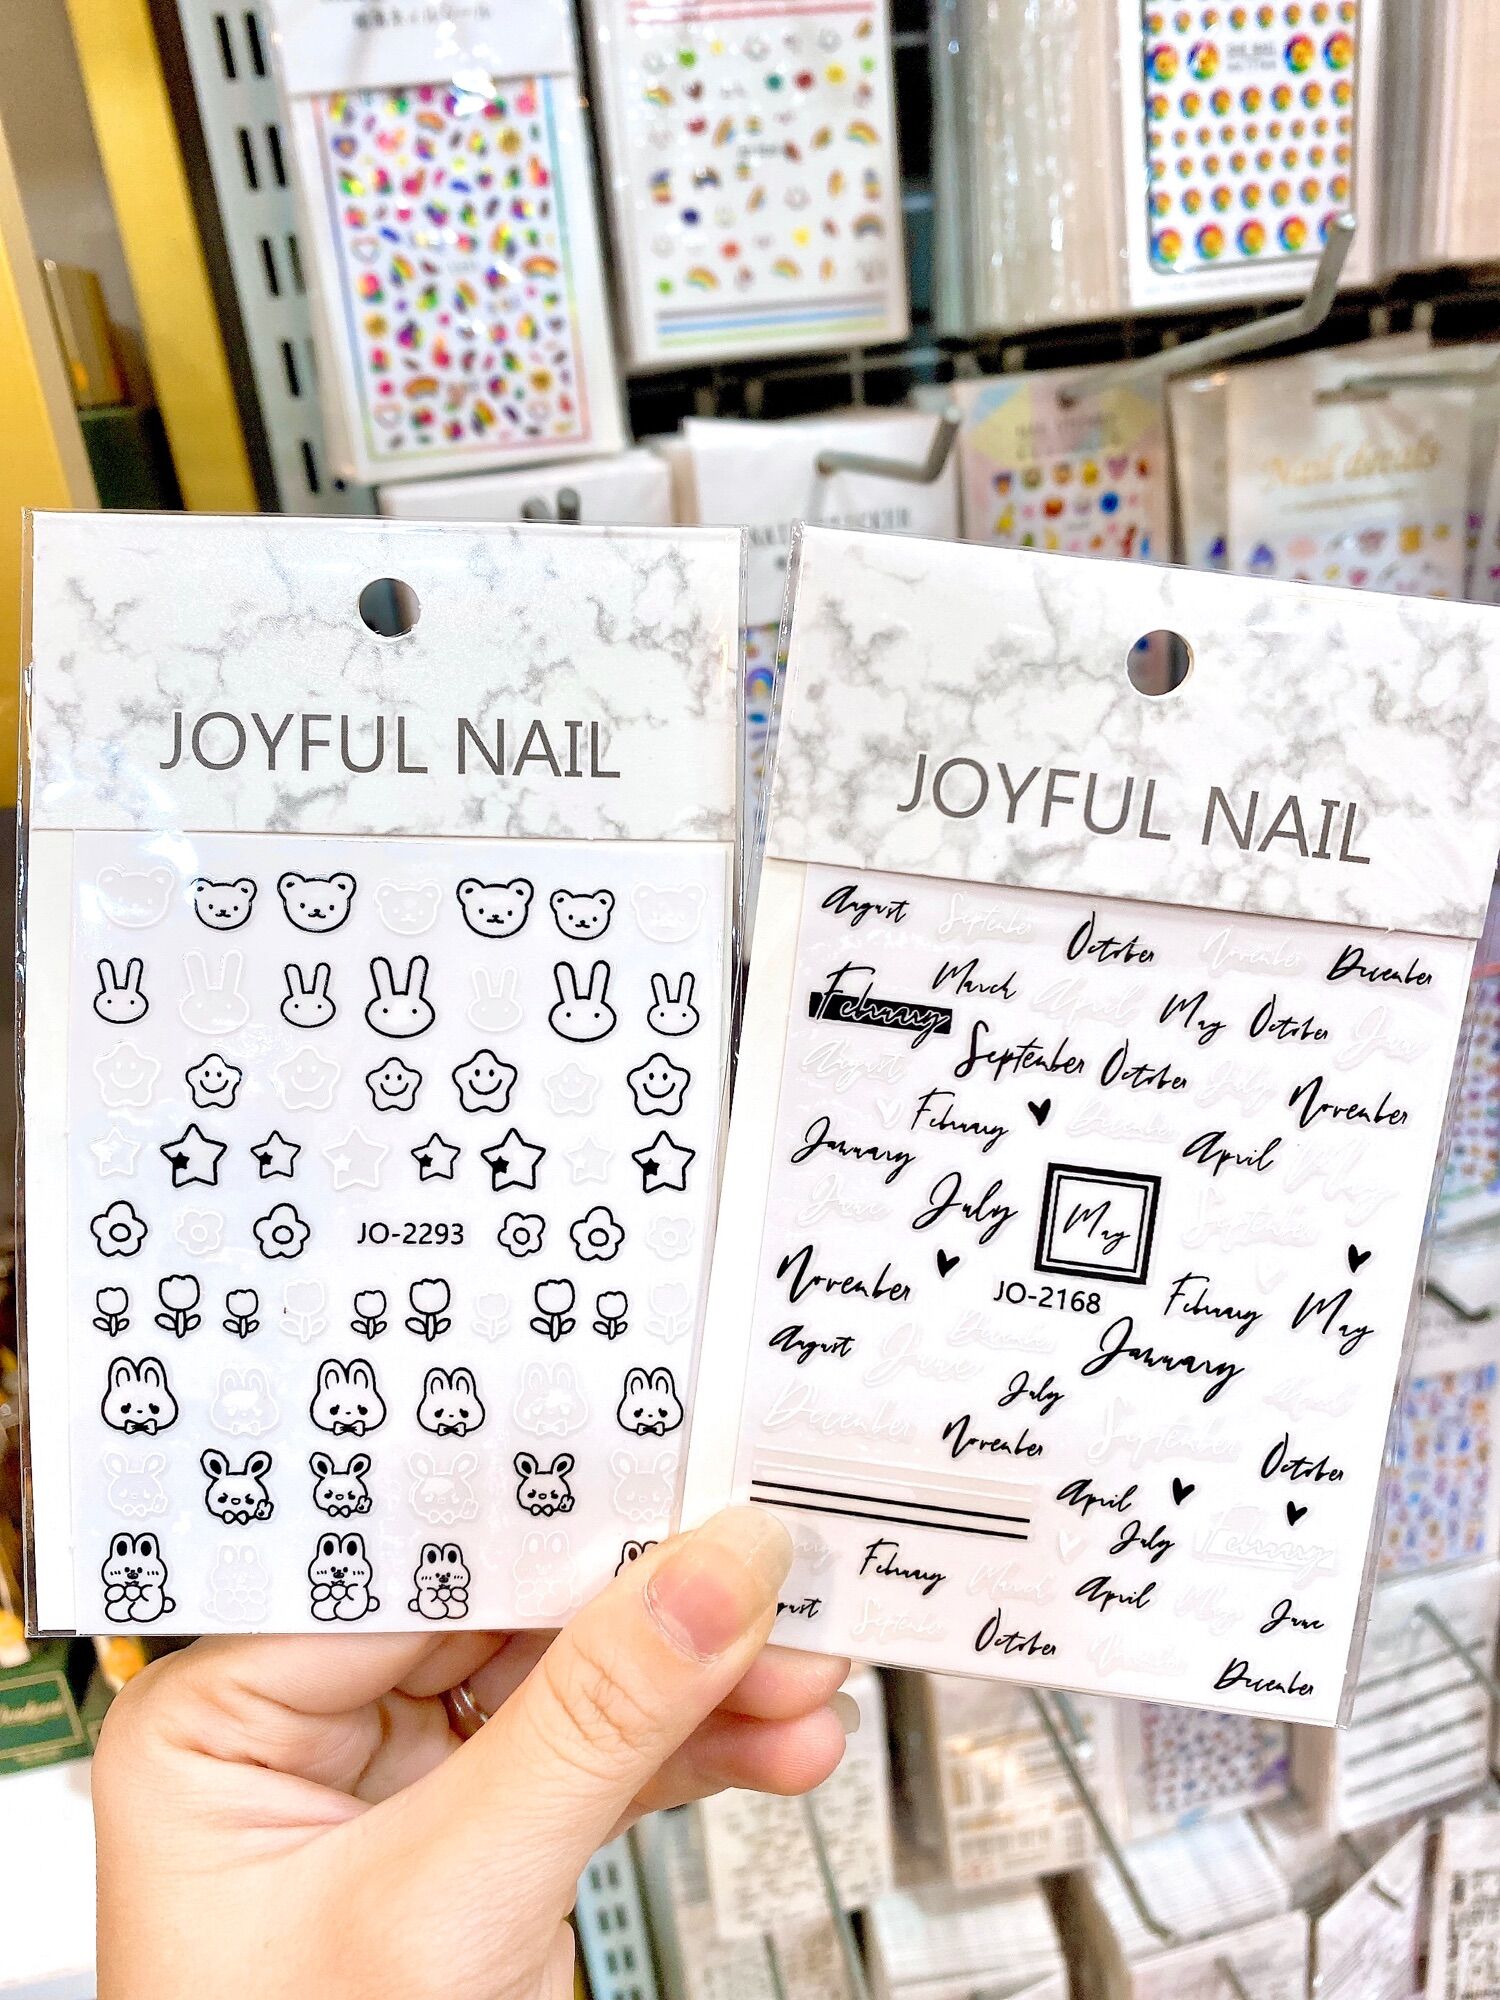 Nail decals
JOYFUL NAIL
JO-2293
JOYFUL NAIL
August September October November December
February March April May October June
August September October July November
February December April May
January
June July May September
November JO-2168 February May
August June December January
July
December November September October
April
July February
February March April May June
September October November December